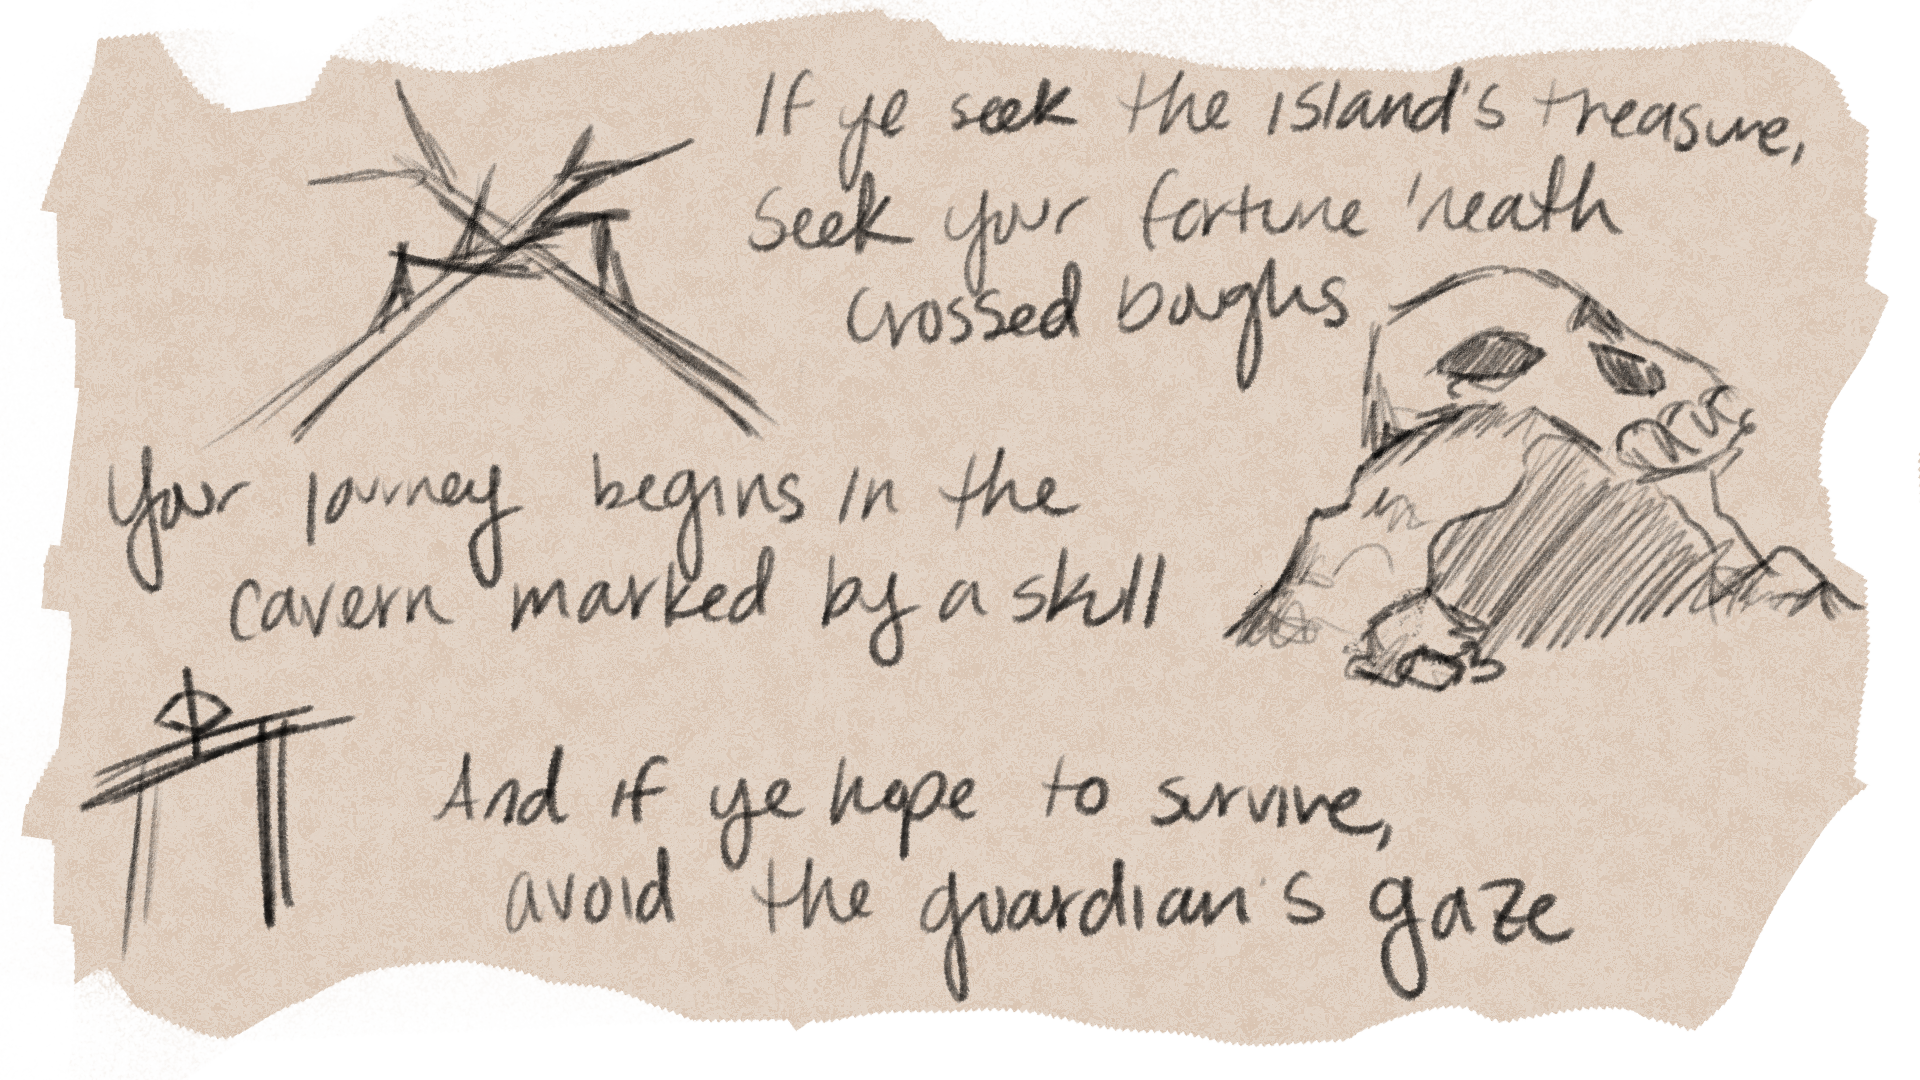 If ye seek the island's treasure,
Seek your fortune 'neath
crossed boughs
Your journey begins in the
cavern marked by a skull
And if ye hope to survive,
avoid the guardian's gaze